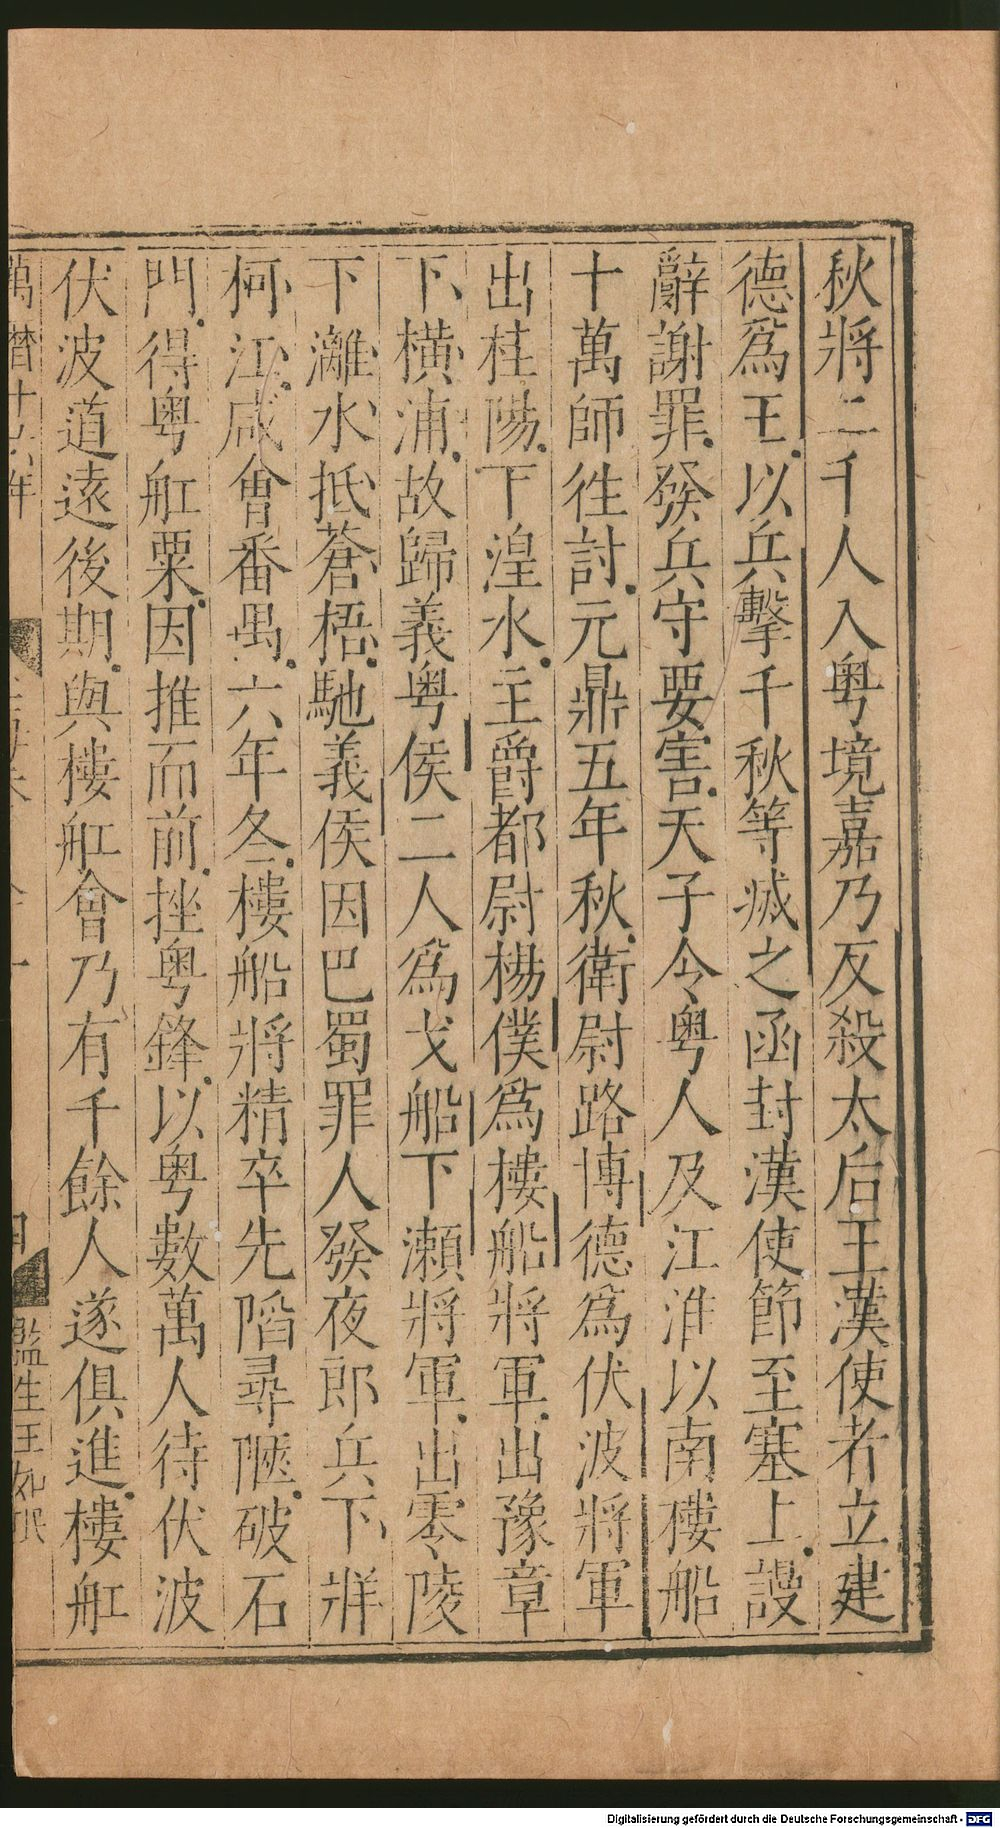 秋將二千人入粤境嘉乃反殺太后王漢使者立建
德爲王以兵擊千秋等滅之函封漢使節至塞上謾
辭謝罪發兵守要害天子令粤人及江淮以南樓船
十萬師徃討元鼎五年秋衛尉路博德爲伏波將軍
出桂陽下湟水主爵都尉楊僕爲樓船將軍出豫章
下橫浦故歸義粤侯二人爲戈船下瀬將軍出零陵
下灕水抵蒼梧馳義侯因巴蜀罪人發夜郎兵下牂
柯江咸會番禺六年冬樓船將精卒先䧟尋陿破石
門得粤舡粟因推而前挫粤鋒以粤數萬人待伏波
伏波道逺後期與樓舡會乃有千餘人遂俱進樓舡
萬曆十六年
監生王
Digitalisierung gefördert durch die Deutsche Forschungsgemeinschaft - DFG